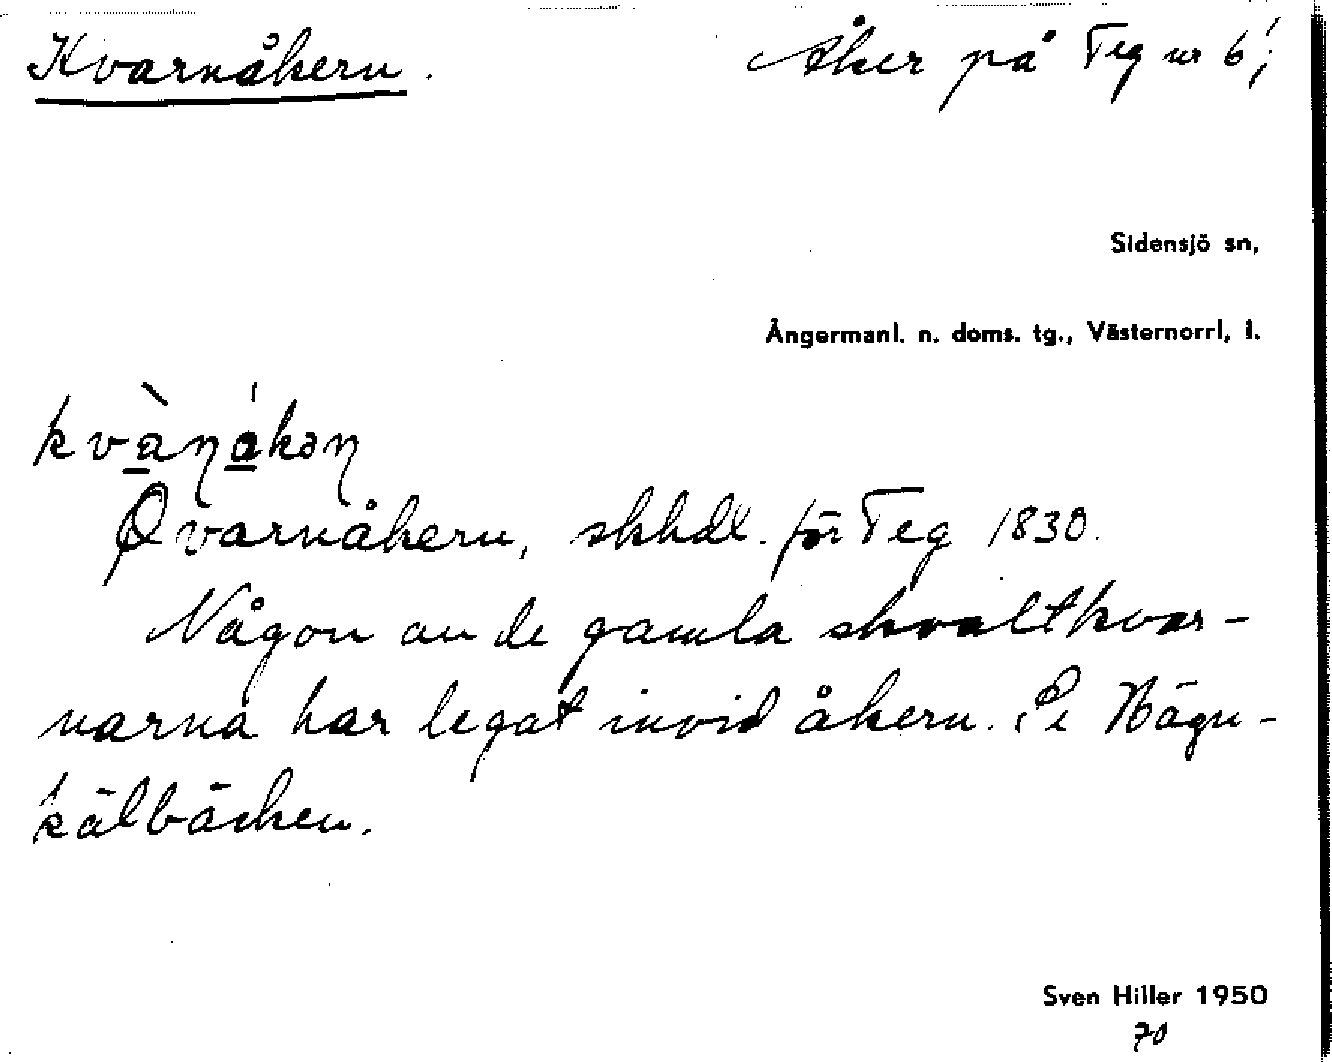 Kvarnåkern. Åker på Teg nr 6¹;
Sidensjö sn,
Ångermanl. n. doms. tg., Västernorrl. l.
kvànákən
Qvarnåkern, skhdl. för Teg 1830.
Någon av de gamla skvaltkvar-
narna har legat invid åkern. Se Hägn-
kälbäcken.
Sven Hiller 1950
70